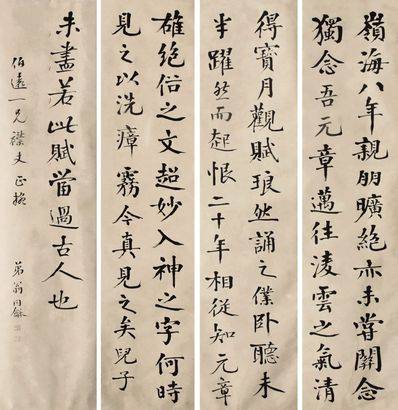 嶺海八年親朋曠絕亦未嘗關念
獨念吾元章邁往淩雲之氣清
得寶月觀賦琅然誦之僕臥聽未
半躍然而起恨二十年相從知元章
雄絕俗之文超妙入神之字何時
見之以洗瘴霧今真見之矣兒子
未盡若此賦當過古人也
伯遠一兄襟丈正 弟翁同龢